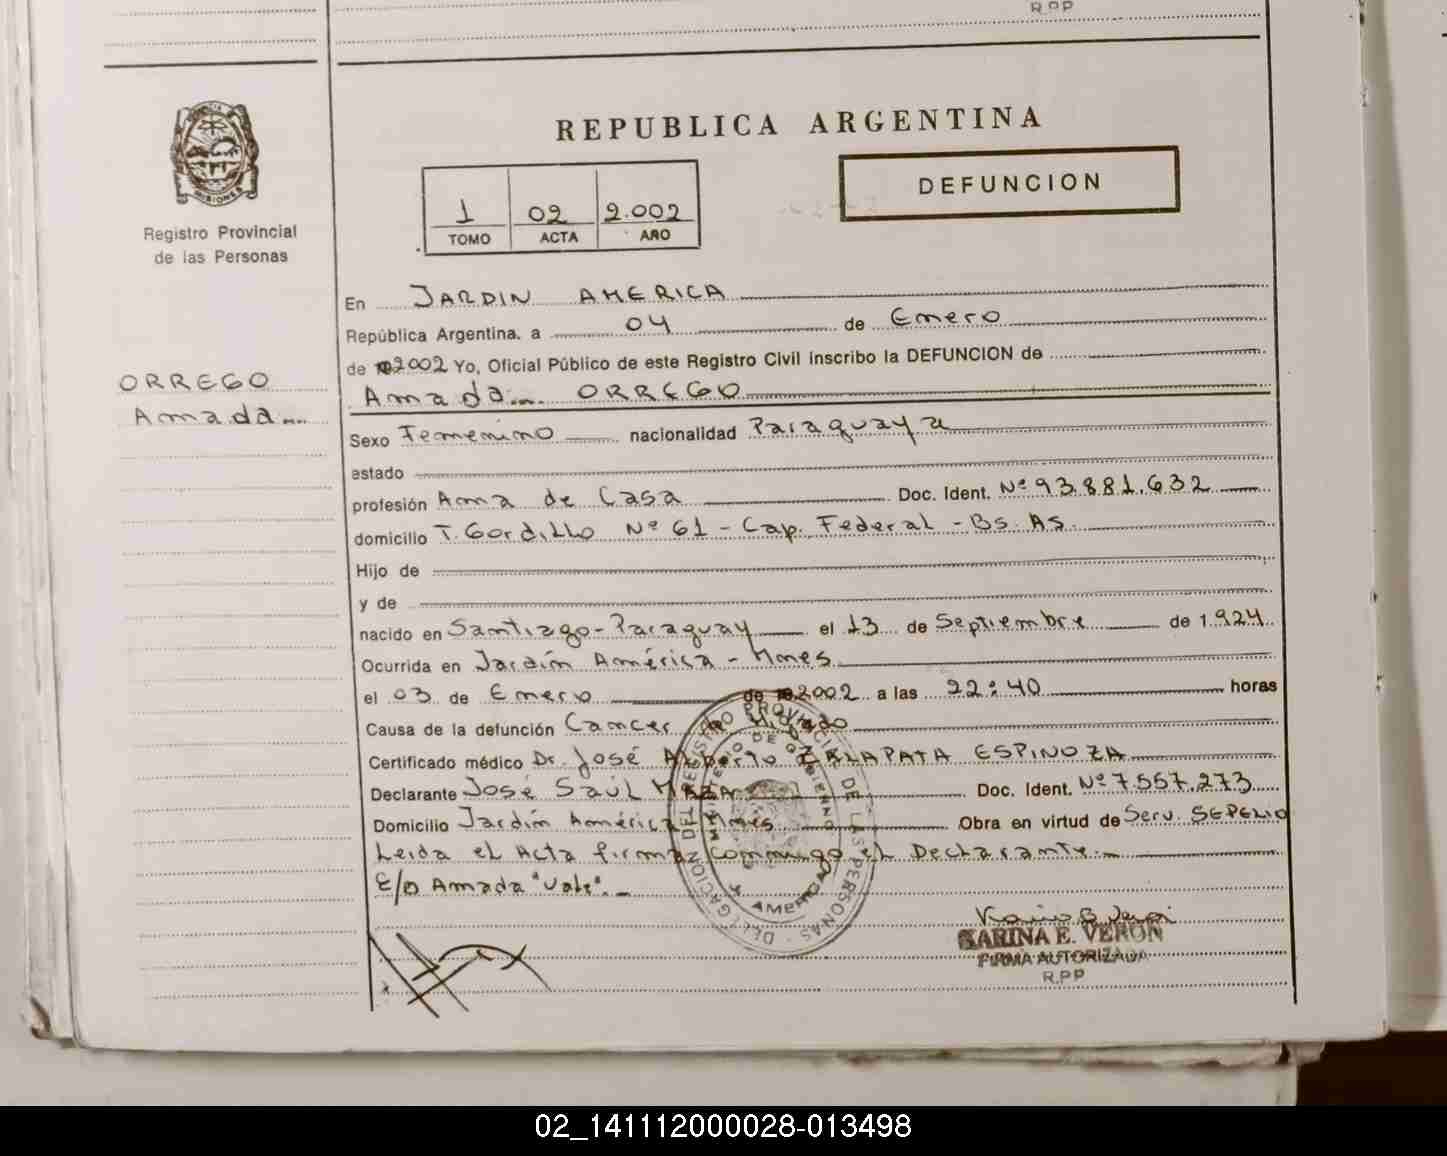 R.P.P
REPUBLICA ARGENTINA
DEFUNCION
1 02 2.002
TOMO ACTA AÑO
MISIONES
Registro Provincial
de las Personas
ORREGO
Amada
En JARDIN AMERICA
República Argentina, a 04 de Enero
de 2002 Yo, Oficial Público de este Registro Civil inscribo la DEFUNCION de
Amada ORREGO
Sexo Femenino nacionalidad Paraguaya
estado
profesión Ama de Casa Doc. Ident. Nº 93.881.632
domicilio T. Gordillo Nº 61 - Cap. Federal - Bs. As.
Hijo de
y de
nacido en Santiago - Paraguay el 13 de Septiembre de 1.924
Ocurrida en Jardín América - Mnes
el 03 de Enero de 2002 a las 22:40 horas
Causa de la defunción Cancer de Higado
Certificado médico Dr. José Alberto ZALAPATA ESPINOZA
Declarante José Saúl Doc. Ident. Nº 7.557.273
Domicilio Jardín América Mnes Obra en virtud de Serv. SEPELIO
Leida el Acta firma conmigo el Declarante.-
E/O Amada "Vale".-
DELEGACION DEL REGISTRO PROVINCIAL DE LAS PERSONAS
MINISTERIO DE GOBIERNO
AMERICA
KARINA E. VERON
FIRMA AUTORIZADA
R.P.P
02_141112000028-013498